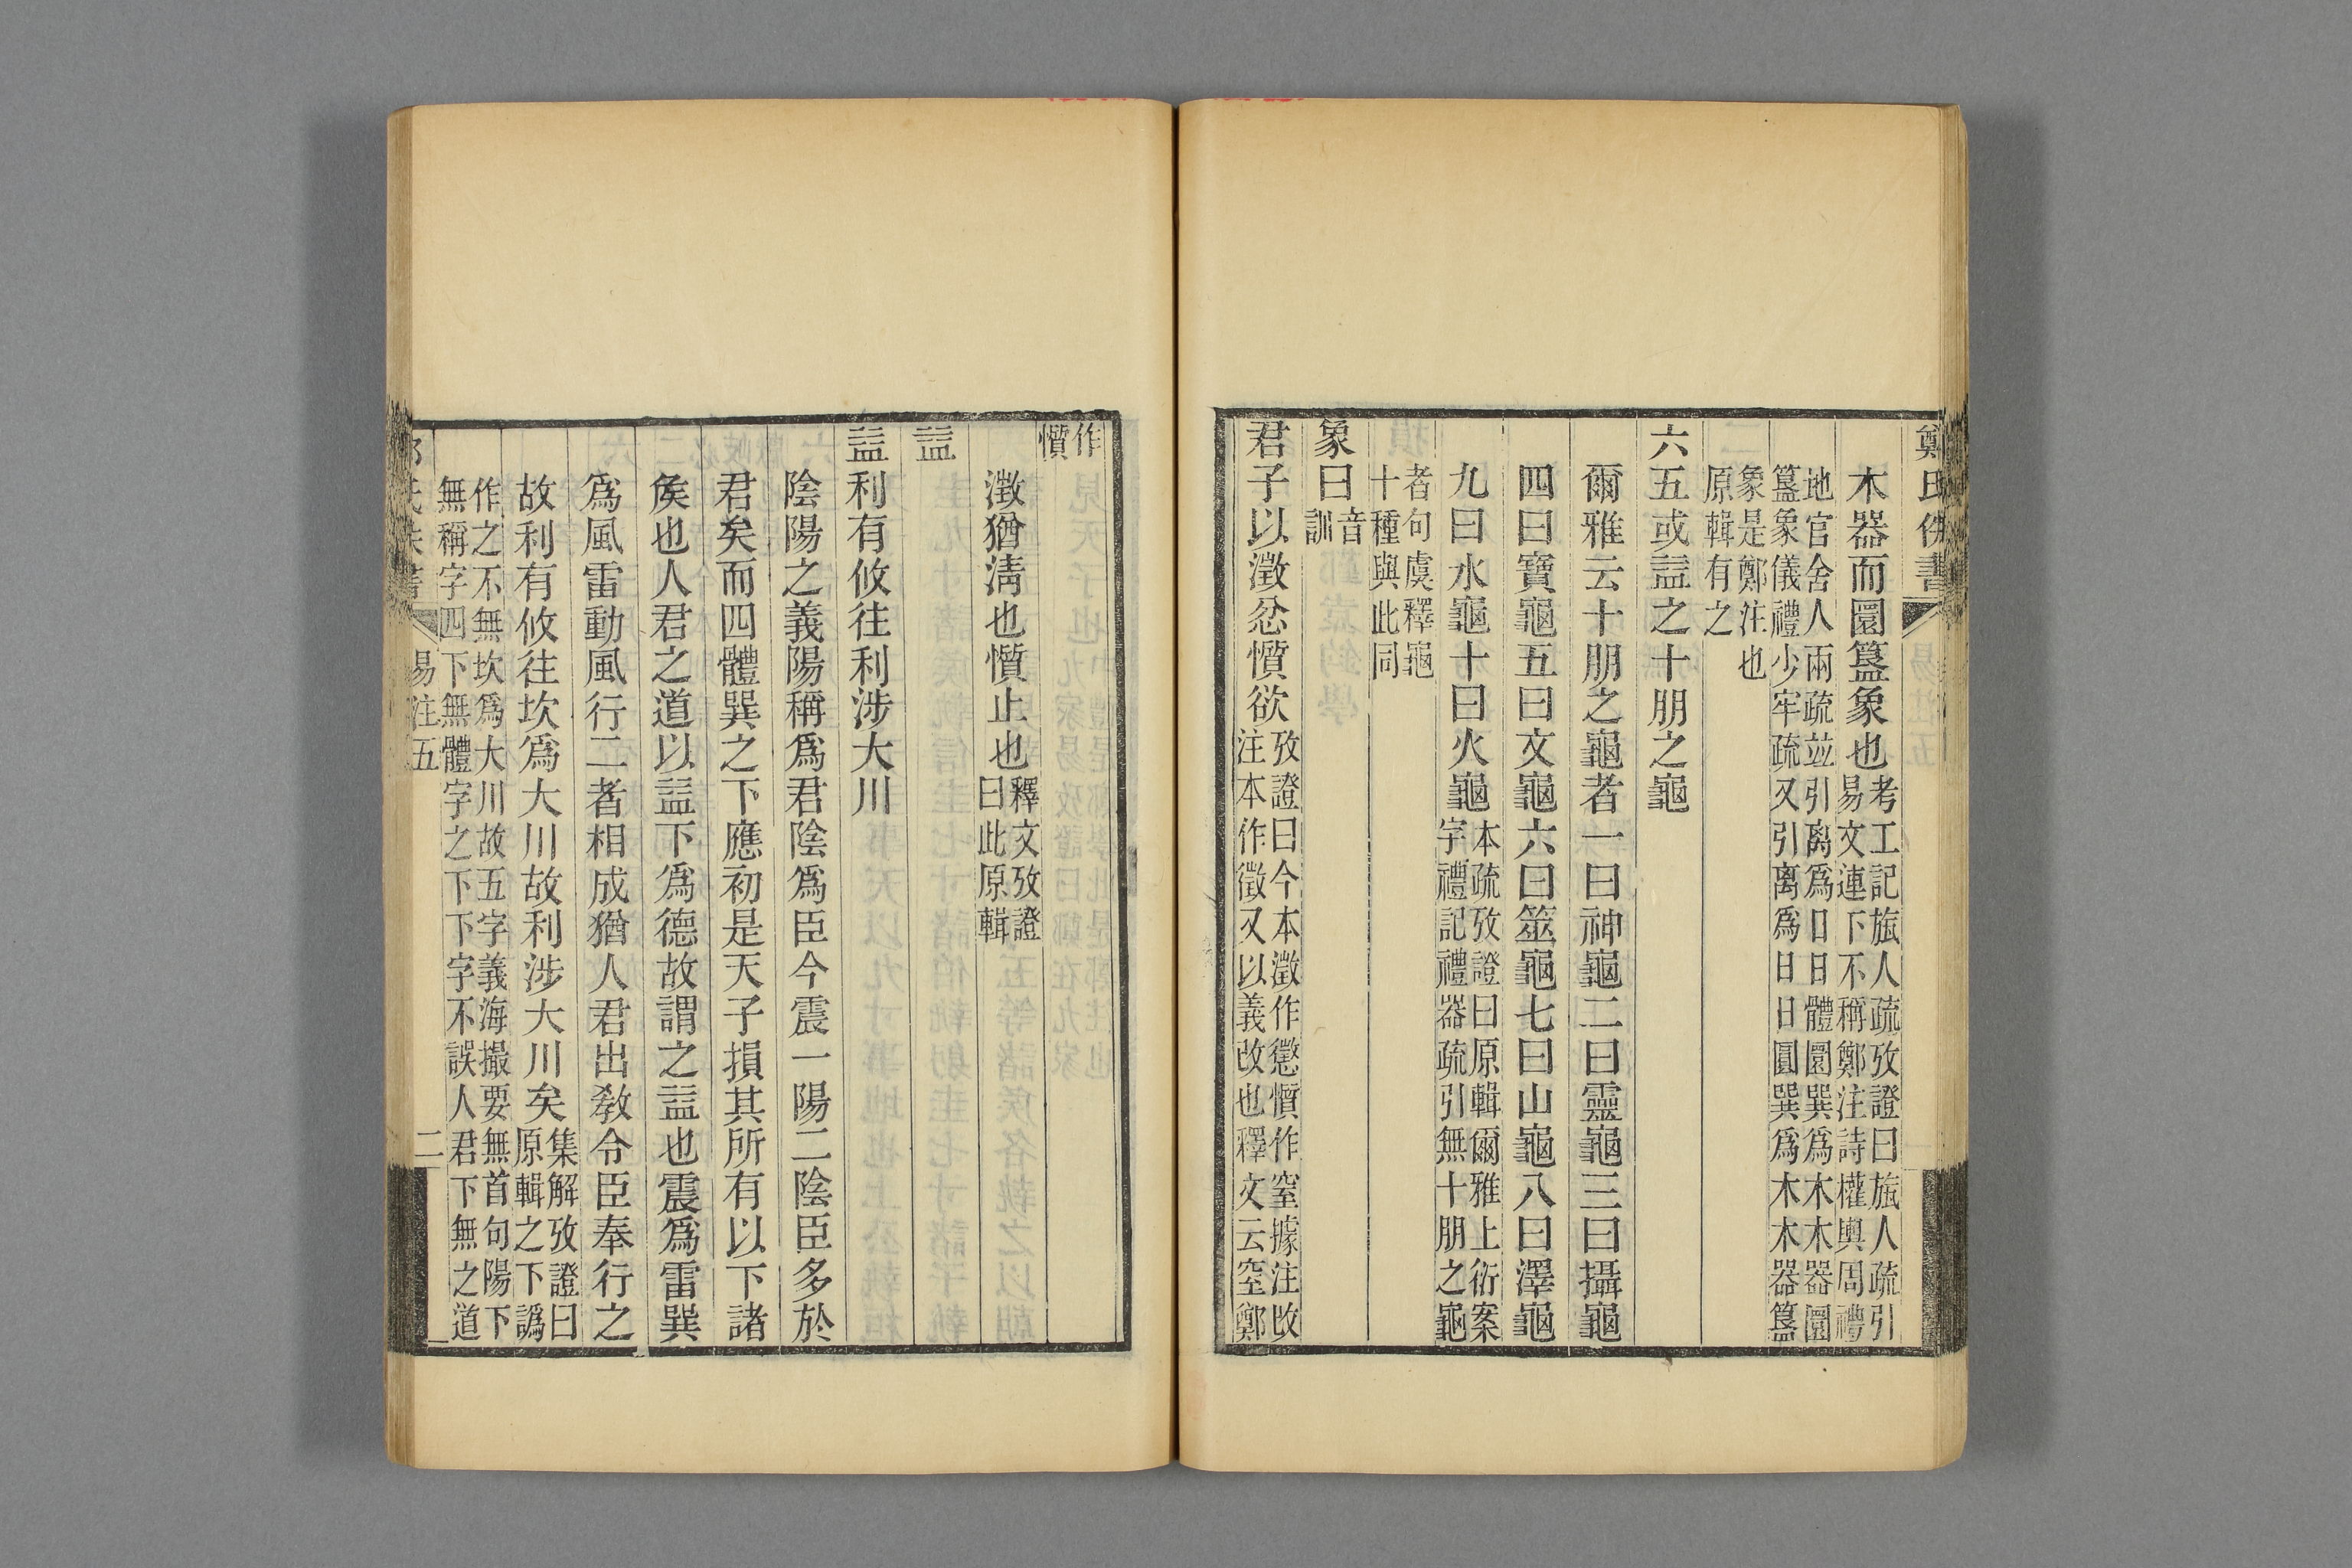 鄭氏佚書
木器而圜簋象也考工記旊人疏攷證曰旊人疏引
易文連下不稱鄭注詩權輿周禮
地官舍人兩疏竝引离爲日日體圜巽爲木木器圜
簋象儀禮少牢疏又引离爲日日圓巽爲木木器簋
象是鄭注也
原輯有之
六五或益之十朋之龜
爾雅云十朋之龜者一曰神龜二曰靈龜三曰攝龜
四曰寶龜五曰文龜六曰筮龜七曰山龜八曰澤龜
九曰水龜十曰火龜本疏攷證曰原輯爾雅上衍案
字禮記禮器疏引無十朋之龜
者句虞釋龜
十種與此同
象曰音
訓
君子以澂忿懫欲攷證曰今本澂作懲懫作窒據注改
注本作徵又以義改也釋文云窒鄭
作
懫
澂猶淸也懫止也釋文攷證
曰此原輯
益
益利有攸往利涉大川
陰陽之義陽稱爲君陰爲臣今震一陽二陰臣多於
君矣而四體巽之下應初是天子損其所有以下諸
矦也人君之道以益下爲德故謂之益也震爲雷巽
爲風雷動風行二者相成猶人君出敎令臣奉行之
故利有攸往坎爲大川故利涉大川矣集解攷證曰
原輯之下譌
作之不無坎爲大川故五字義海撮要無首句陽下
無稱字四下無體字之下下字不誤人君下無之道
氏佚書
易注五
二